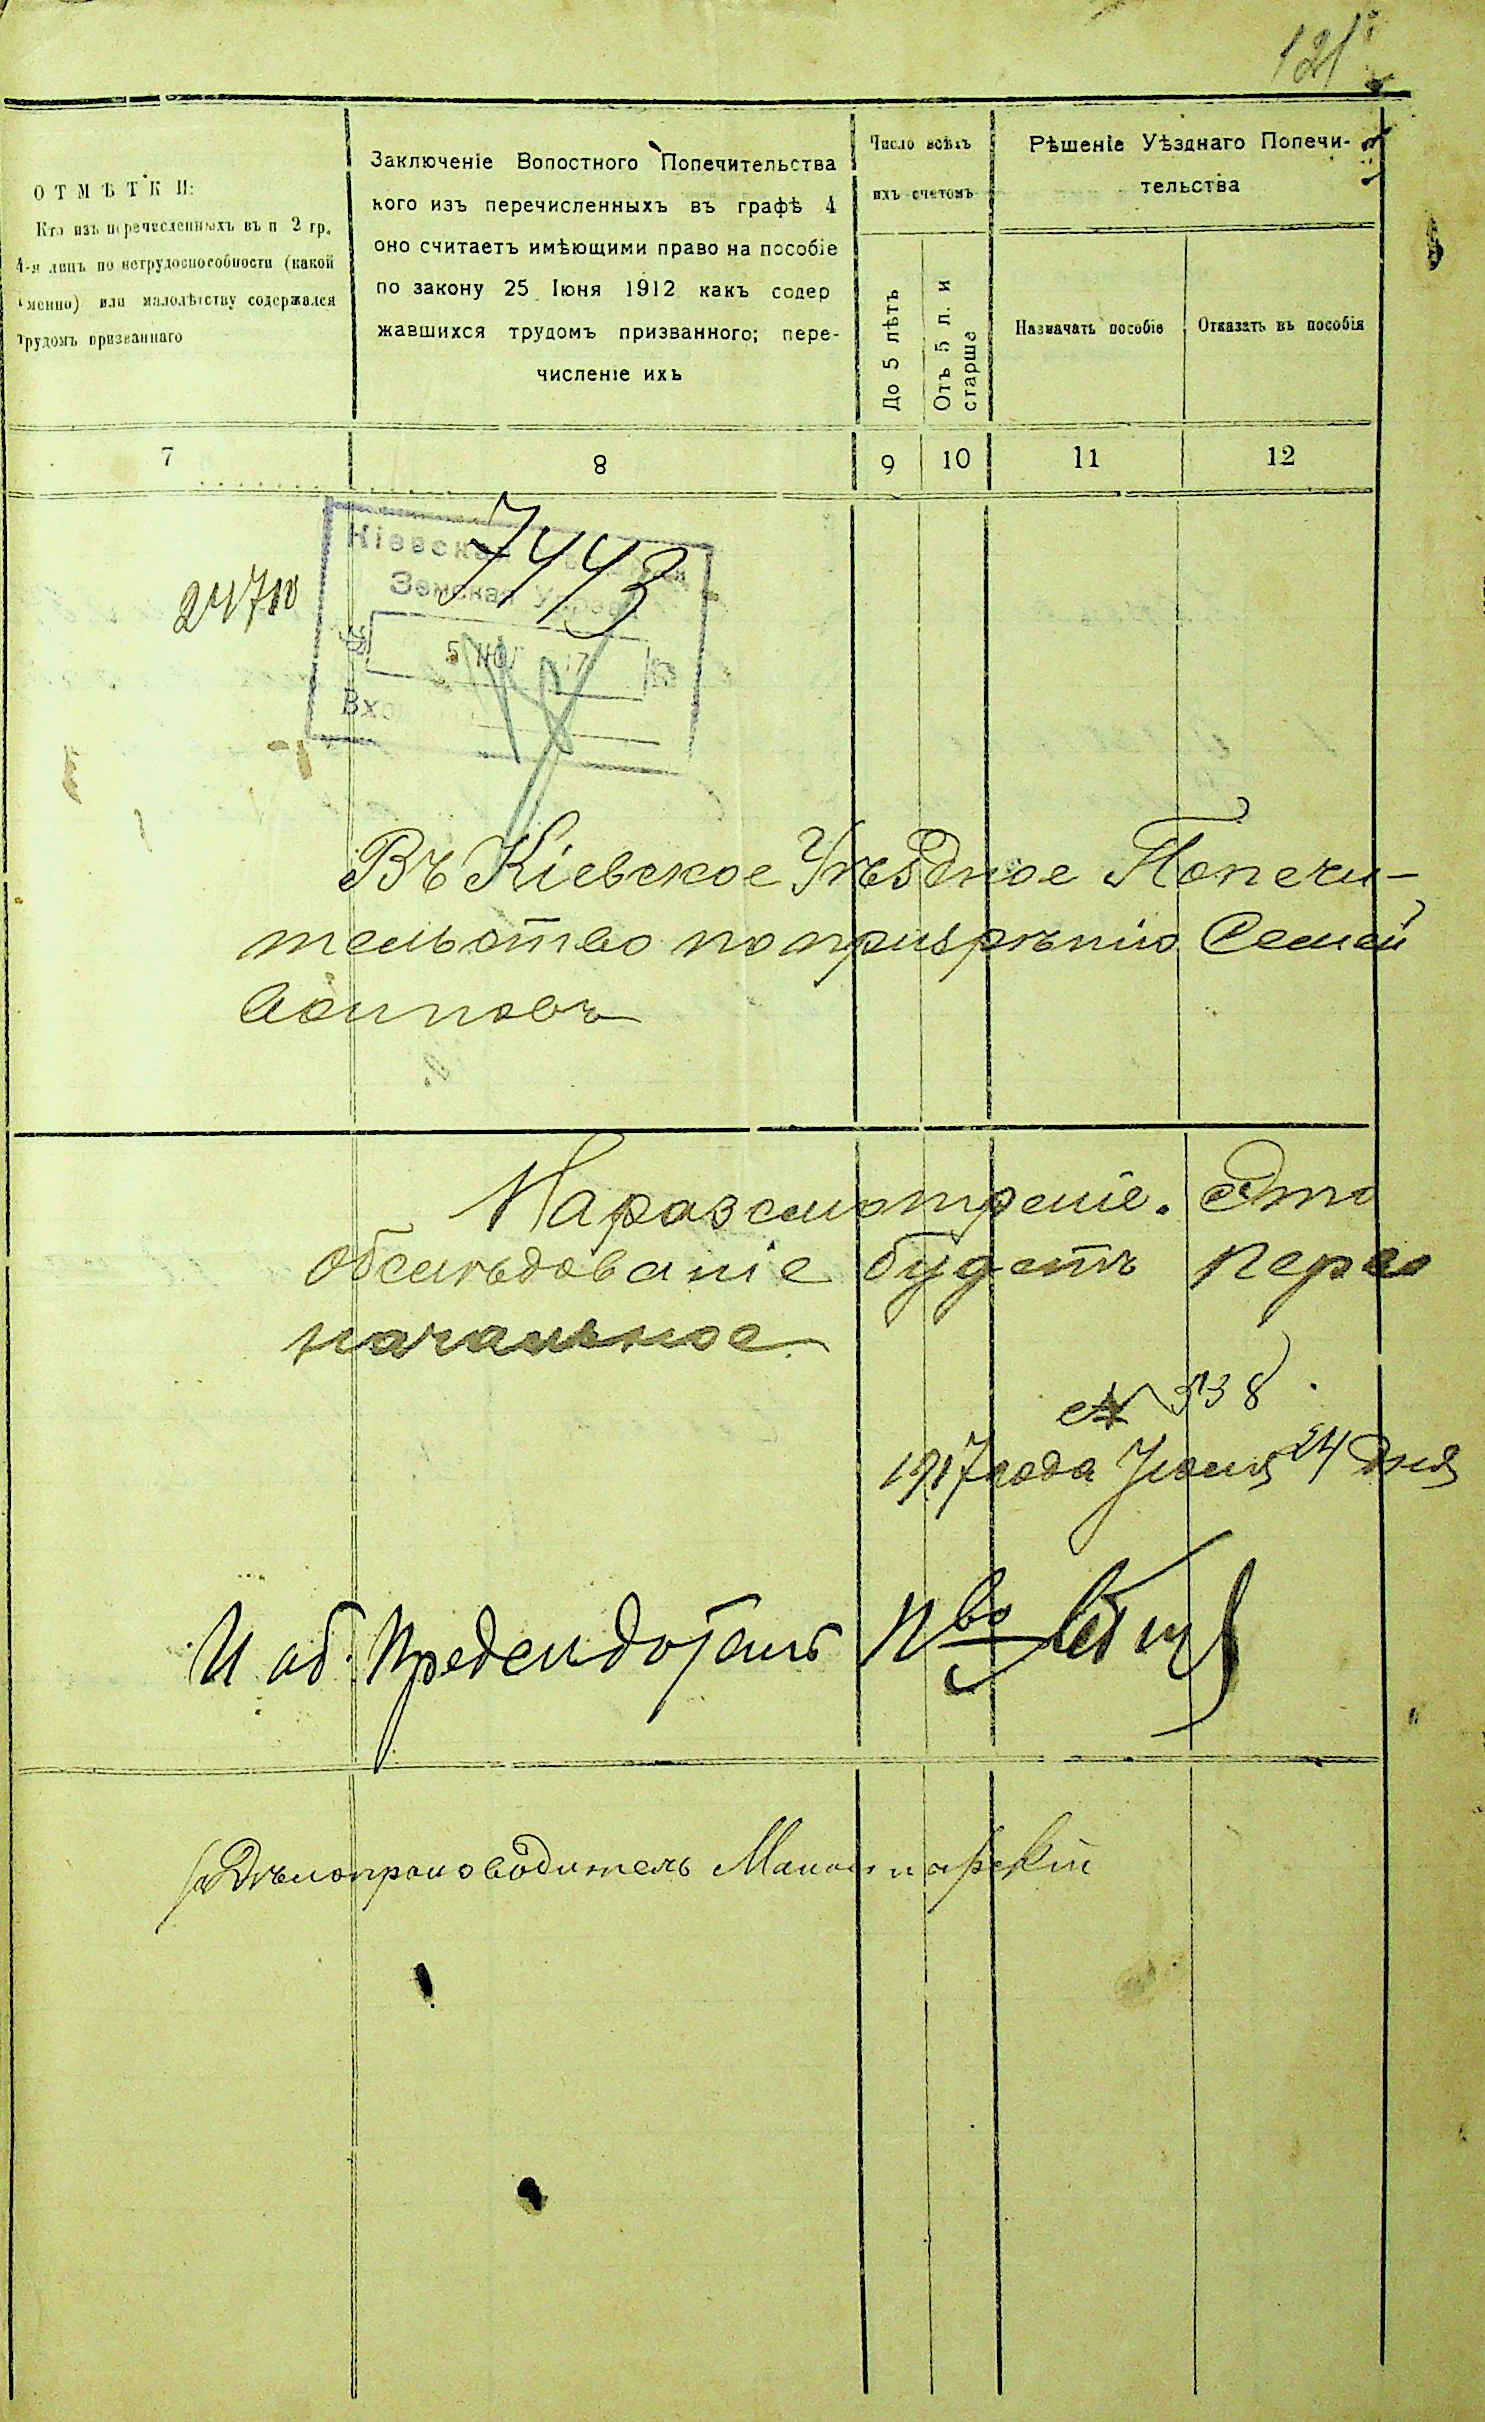 121
ОТМѢТКИ:
Кто изъ перечисленныхъ въ п 2 гр.
4-я лицъ по нетрудоспособности (какой
именно) или малолѣтству содержался
трудомъ призваннаго
Заключеніе Вопостного Попечительства
кого изъ перечисленныхъ въ графѣ 4
оно считаетъ имѣющими право на пособіе
по закону 25 Іюня 1912 какъ содер
жавшихся трудомъ призванного; пере-
численіе ихъ
Число всѣхъ
ихъ счетомъ
До 5 лѣтъ
Отъ 5 л. и
старше
Рѣшеніе Уѣзднаго Попечи-
тельства
Назначать пособіе
Отказать въ пособія
7 8 9 10 11 12
7443
Кіевская
Земская Управа
5 17
Вхо
Въ Кіевское Уѣздное Попечи-
тельство по призрѣнію Семей
воиновъ
На разсмотреніе. Это
обслѣдованіе будетъ перво
начальное
№ 338
1917 года Июня 24 дня
И об. Председатель
Дѣлопроизводитель